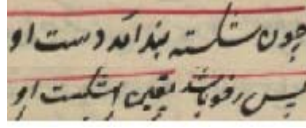 چون شکسته بند آمد دست او
پس رفو باشد یقین اشکست او